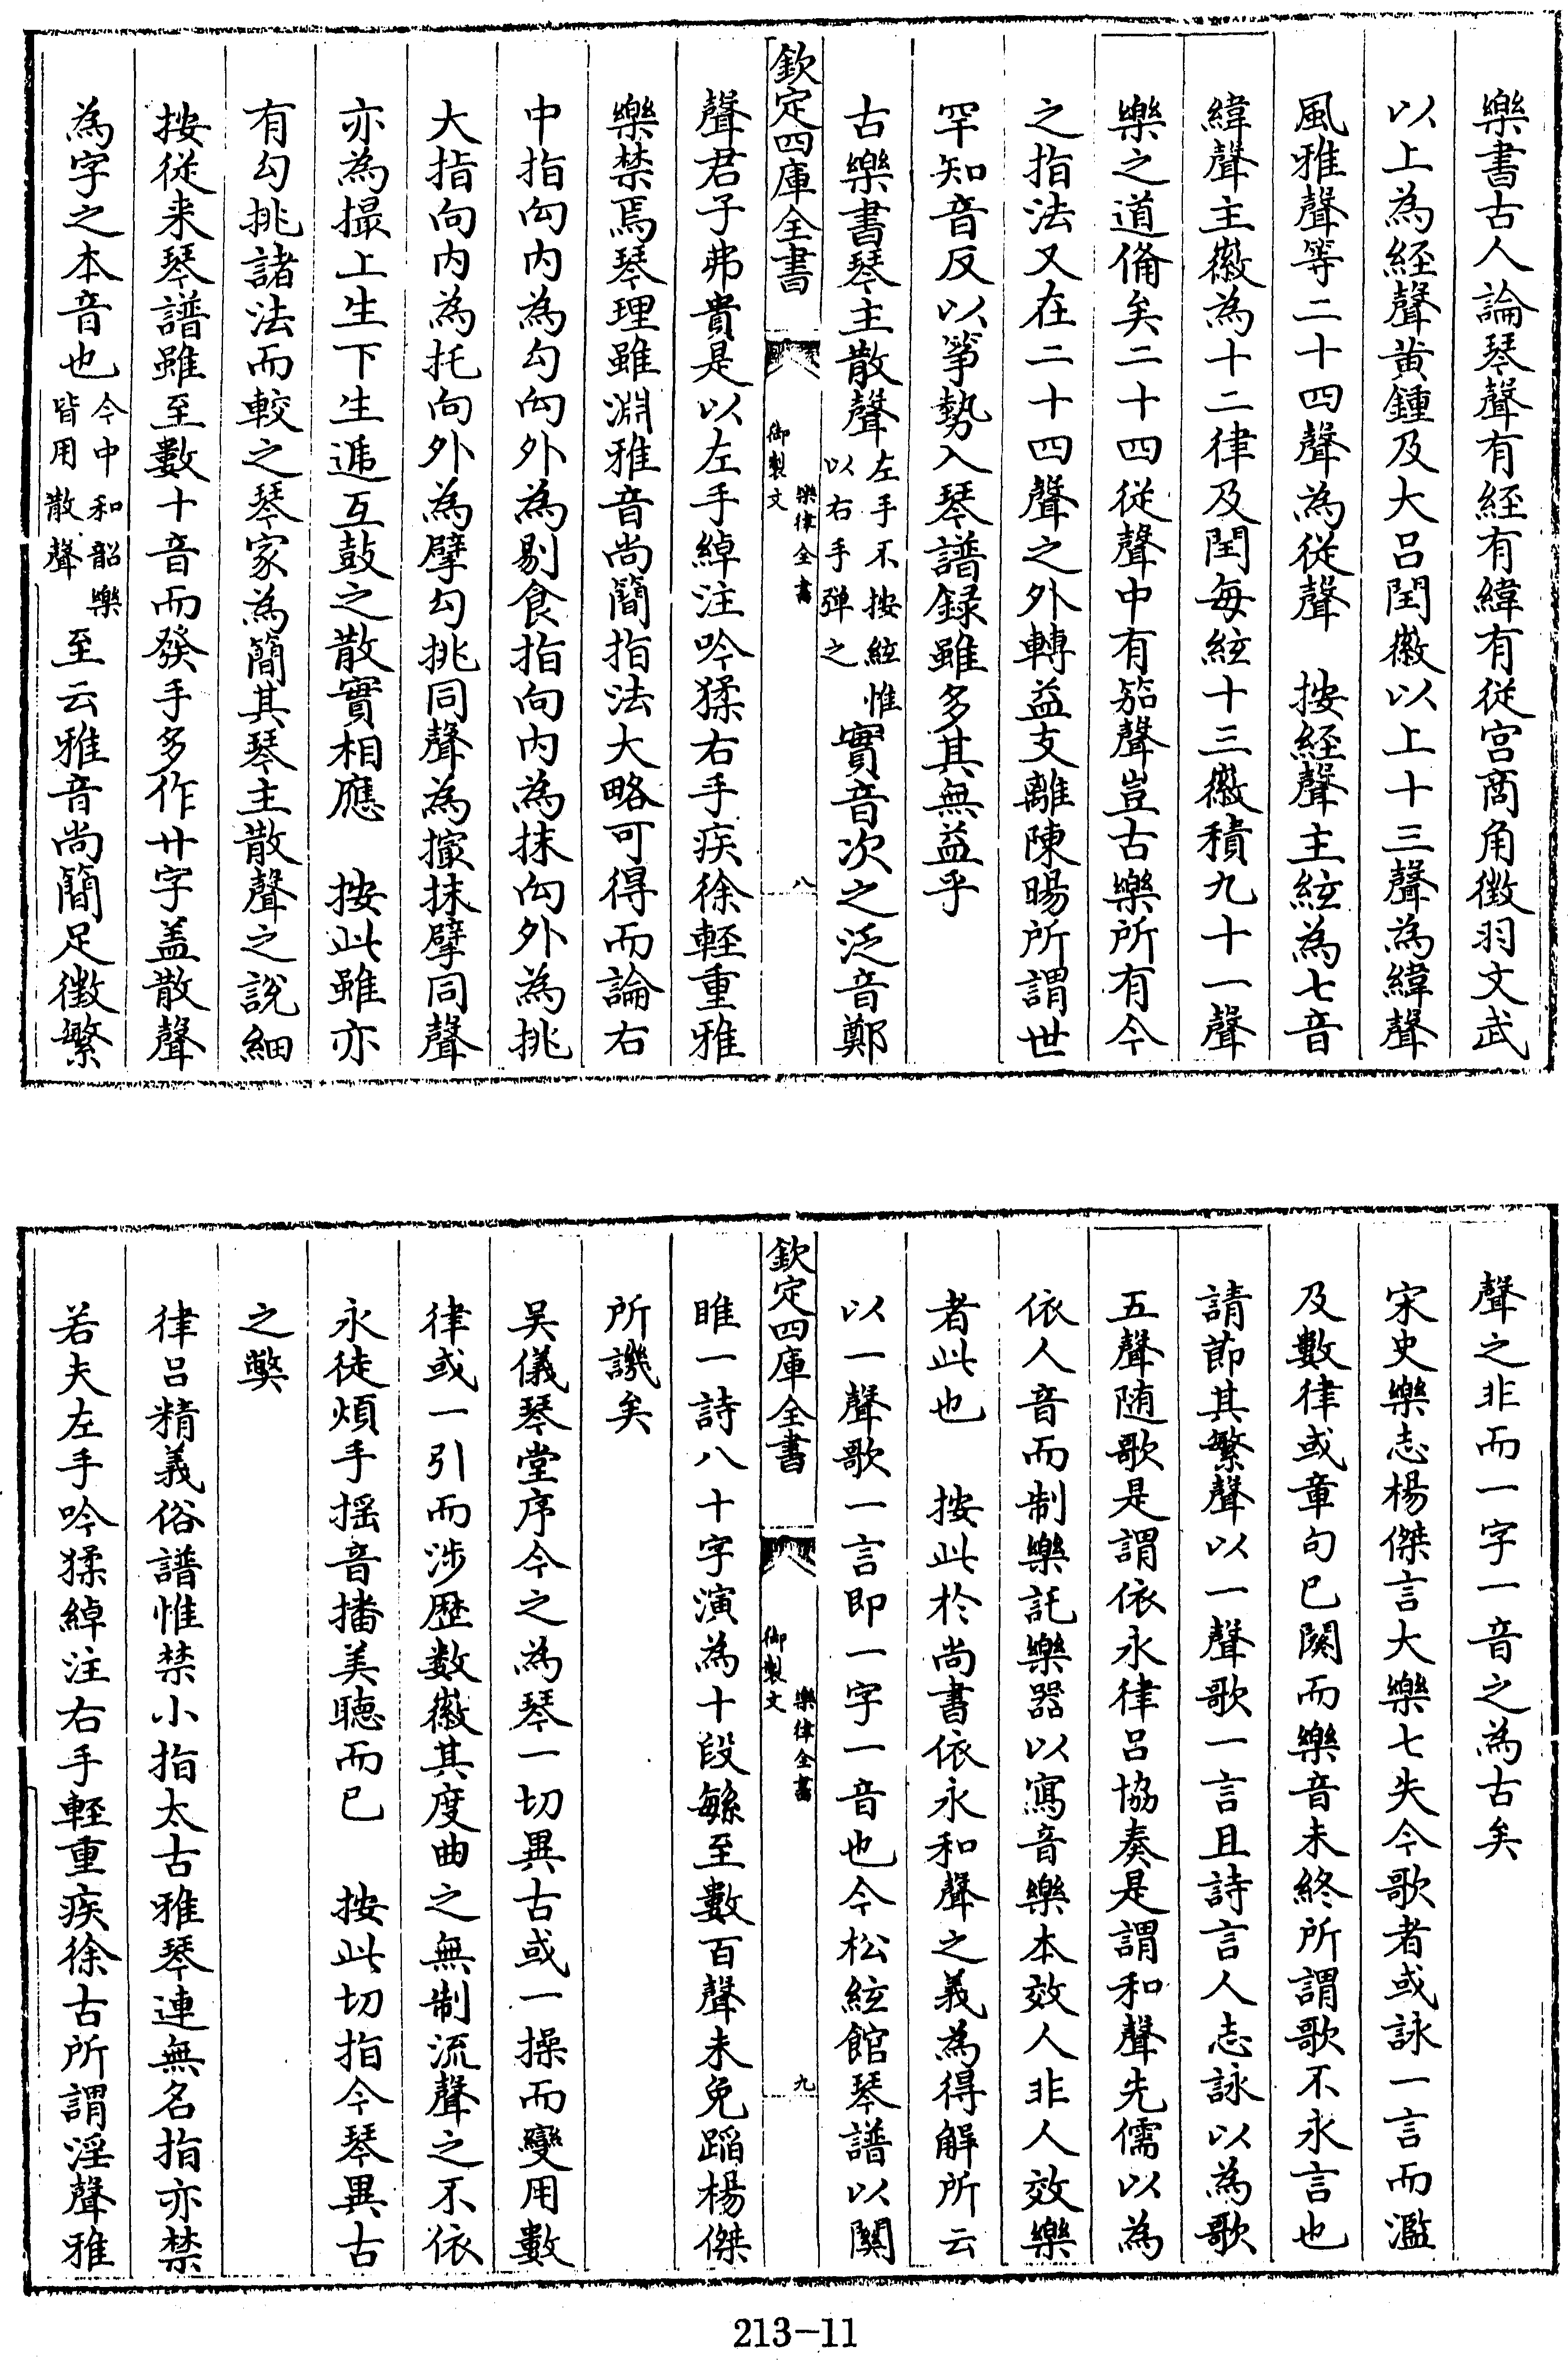 樂書古人論琴聲有經有緯有從宫商角徴羽文武
以上為經聲黄鍾及大吕閏徽以上十三聲為緯聲
風雅聲等二十四聲為從聲　按經聲主絃為七音
緯聲主徽為十二律及閏每絃十三徽積九十一聲
樂之道備矣二十四從聲中有笳聲豈古樂所有今
之指法又在二十四聲之外轉益支離陳暘所謂世
罕知音反以箏勢入琴譜録雖多其無益乎
古樂書琴主散聲左手不按絃惟以右手弹之實音次之泛音鄭
欽定四庫全書
御製文
樂律全書
八
聲君子弗貴是以左手綽注吟猱右手疾徐輕重雅
樂禁焉琴理雖淵雅音尚簡指法大略可得而論右
中指向内為勾向外為剔食指向内為抹向外為挑
大指向内為托向外為擘勾挑同聲為撳抹擘同聲
亦為撮上生下生遞互鼓之散實相應　按此雖亦
有勾挑諸法而較之琴家為簡其琴主散聲之說細
按從来琴譜雖至數十音而發手多作廾字盖散聲
為字之本音也今中和韶樂皆用散聲至云雅音尚簡足徴繁
聲之非而一字一音之為古矣
宋史樂志楊傑言大樂七失今歌者或詠一言而濫
及數律或章句已闋而樂音未終所謂歌不永言也
請節其繁聲以一聲歌一言且詩言人志詠以為歌
五聲随歌是謂依永律吕協奏是謂和聲先儒以為
依人音而制樂託樂器以寫音樂本效人非人效樂
者此也　按此於尚書依永和聲之義為得解所云
以一聲歌一言即一字一音也今松絃館琴譜以關
欽定四庫全書
御製文
樂律全書
九
雎一詩八十字演為十段緐至數百聲未免蹈楊傑
所譏矣
吴儀琴堂序今之為琴一切異古或一操而變用數
律或一引而涉歷数徽其度曲之無制流聲之不依
永徒煩手揺音播美聴而已　按此切指今琴異古
之獘
律吕精義俗譜惟禁小指太古雅琴連無名指亦禁
若夫左手吟猱綽注右手輕重疾徐古所謂淫聲雅
213-11